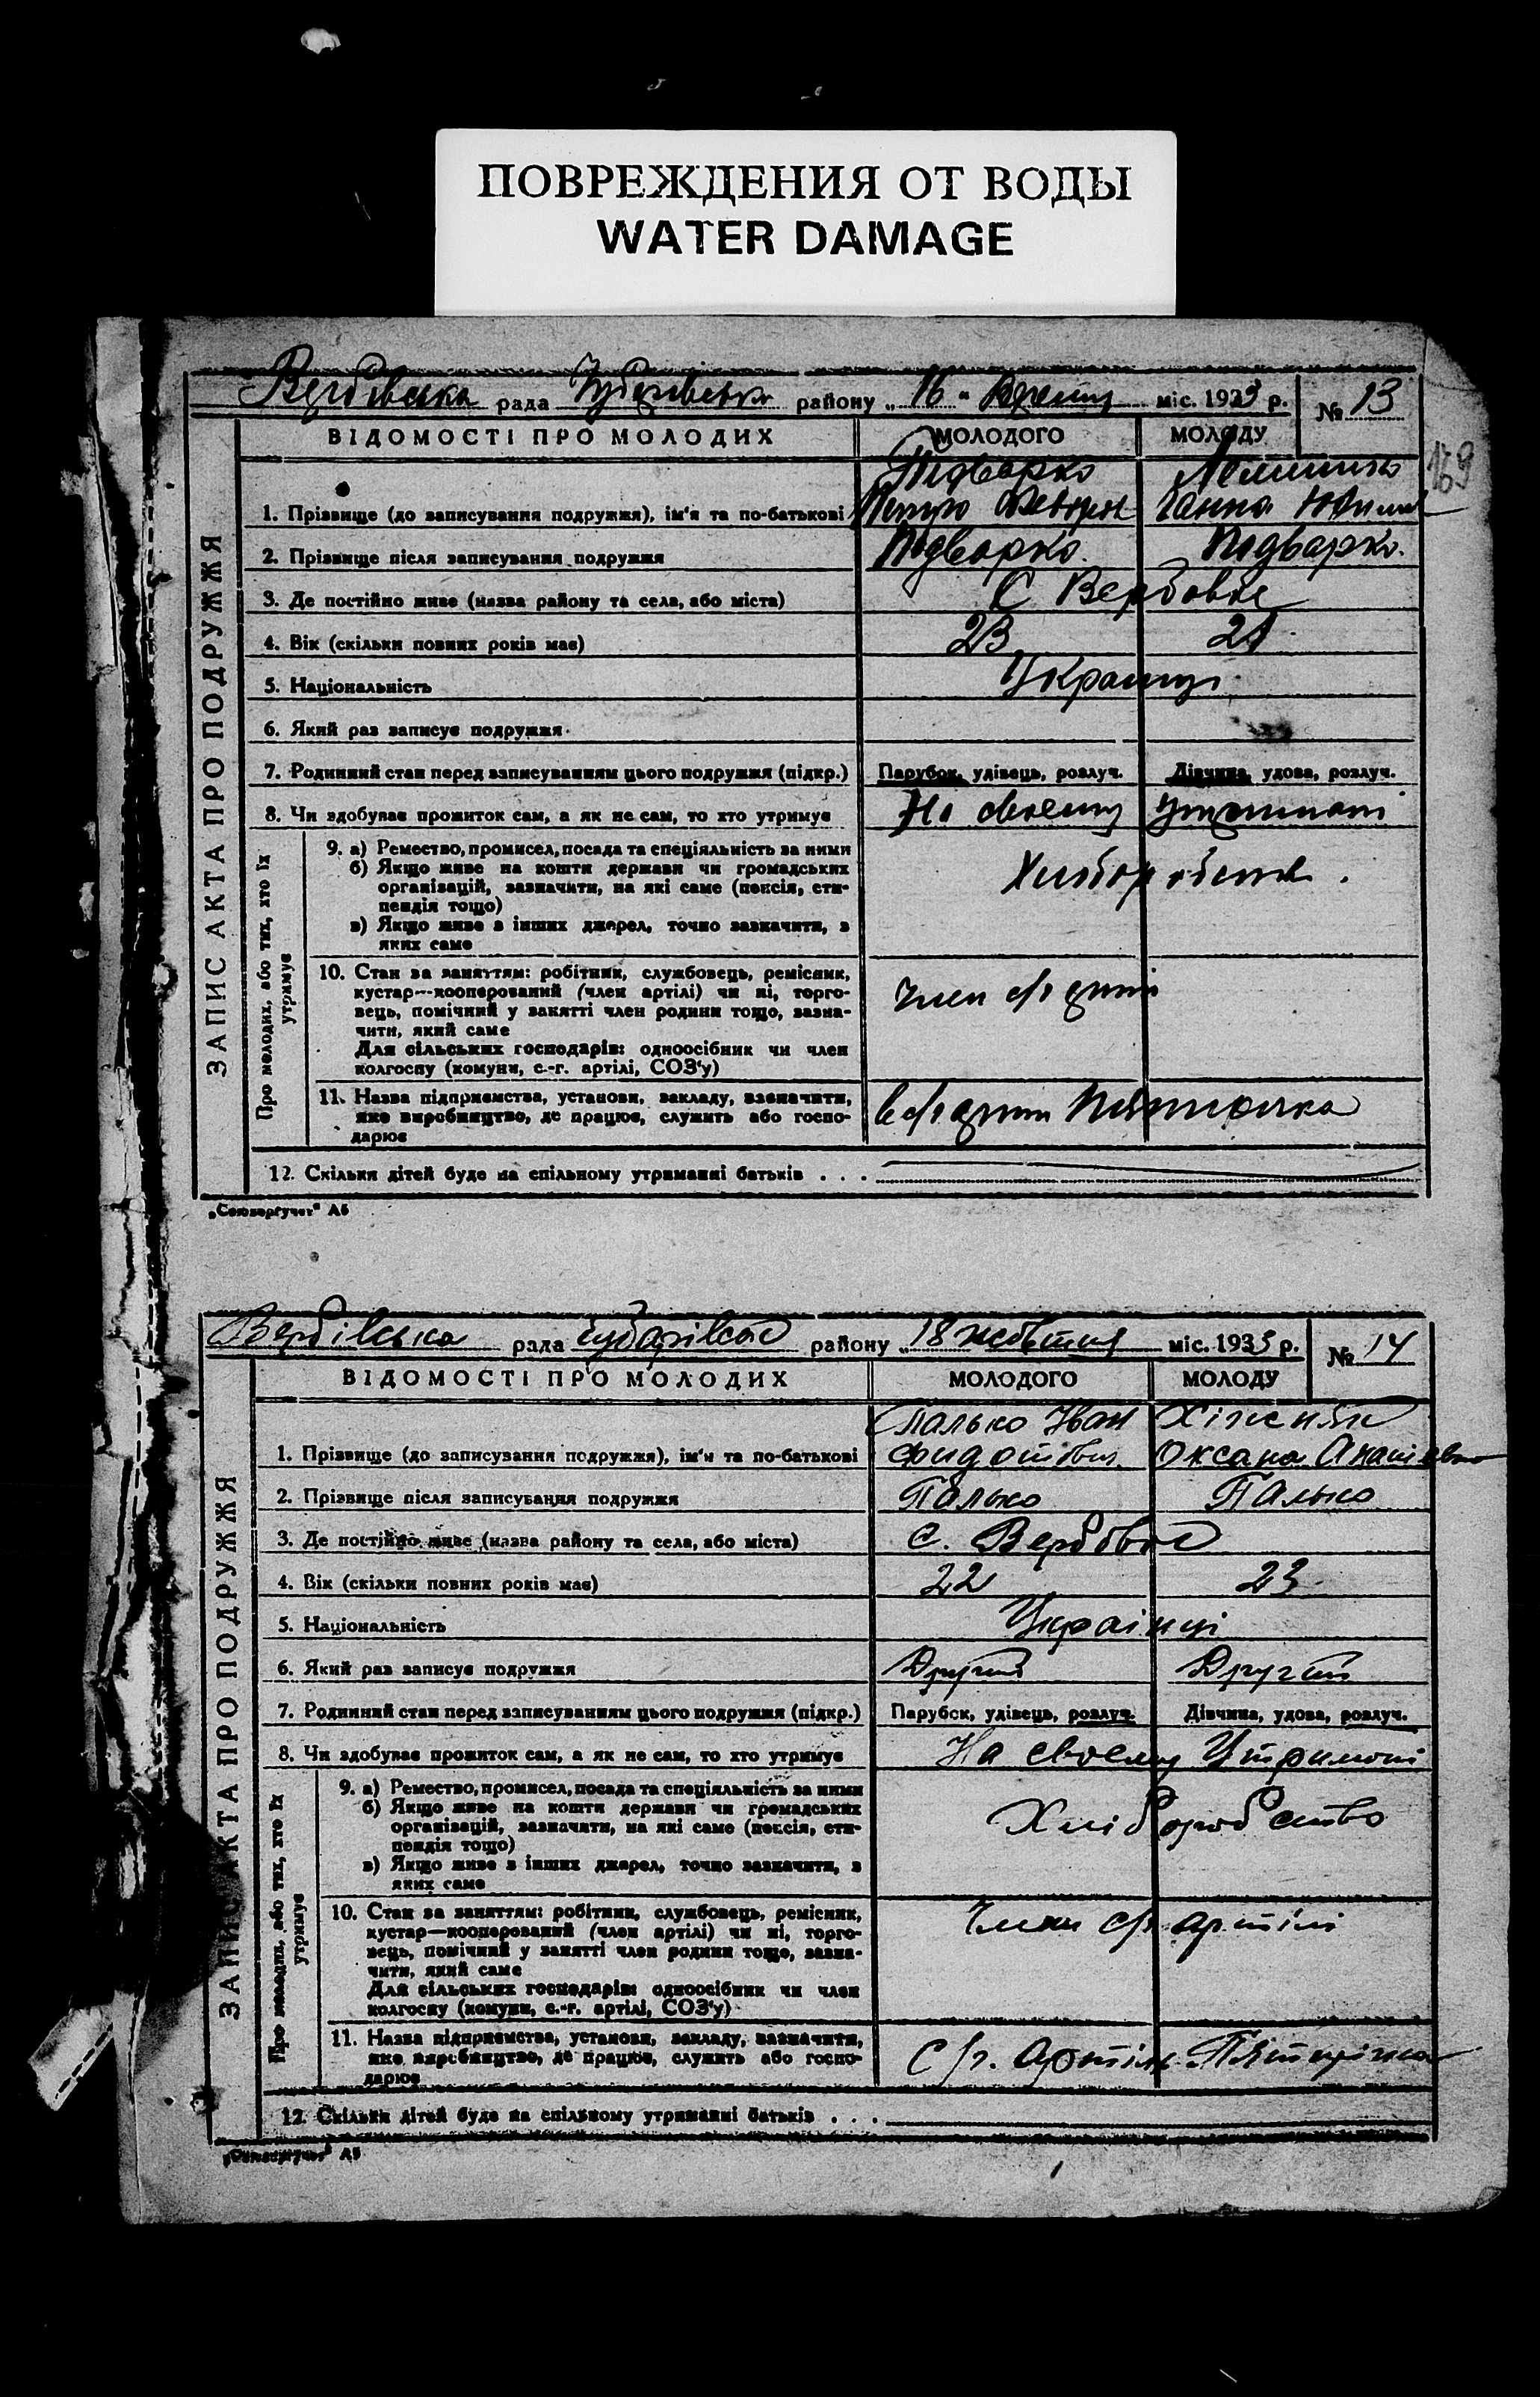 ПОВРЕЖДЕНИЯ ОТ ВОДЫ
WATER DAMAGE
Вербівська рада району „16" міс. 1933 р. № 13
169
ВІДОМОСТІ ПРО МОЛОДИХ МОЛОДОГО МОЛОДУ
Підварко
1. Прізвище (до записування подружжя), ім'я та по-батькові Петро Ганна
2. Прізвище після записування подружжя Підварко Підварко
3. Де постійно живе (назва району та села, або міста) С Вербовое
4. Вік (скільки повних років має) 23 21
5. Національність Українці
6. Який раз записує подружжя
7. Родинний стан перед записуванням цього подружжя (підкр.) Парубок, удівець, розлуч. Дівчина, удова, розлуч.
8. Чи здобуває прожиток сам, а як не сам, то хто утримує На своему утримані
9. а) Ремество, промисел, посада та спеціяльність за ними
б) Якщо живе на кошти держави чи громадських
організацій, зазначити, на які саме (пенсія, сти-
пендія тощо)
в) Якщо живе з інших джерел, точно зазначити, з
яких саме
Хліборобство
10. Стан за заняттям: робітник, службовець, ремісник,
кустар—кооперований (член артілі) чи ні, торго-
вець, помічний у занятті член родини тощо, зазна-
чити, який саме
Для сільських господарів: одноосібник чи член
колгоспу (комуни, с.-г. артілі, СОЗ'у)
Член с/г артілі
11. Назва підприємства, установи, закладу, зазначити,
яке виробництво, де працює, служить або госпо-
дарює
в с/г артілі Пятирічка
12. Скільки дітей буде на спільному утриманні батьків . . .
ЗАПИС АКТА ПРО ПОДРУЖЖЯ
Про молодих, або тих, хто їх
утримує
„Союзоргучет" А5
Вербівська рада Чубарівської району „18 жовтня міс. 1933 р. № 14
ВІДОМОСТІ ПРО МОЛОДИХ МОЛОДОГО МОЛОДУ
Палько Іван
1. Прізвище (до записування подружжя), ім'я та по-батькові Оксана
2. Прізвище після записування подружжя Палько Палько
3. Де постійно живе (назва району та села, або міста) с. Вербовое
4. Вік (скільки повних років має) 22 23
5. Національність Українці
6. Який раз записує подружжя Другий Другий
7. Родинний стан перед записуванням цього подружжя (підкр.) Парубок, удівець, розлуч. Дівчина, удова, розлуч.
8. Чи здобуває прожиток сам, а як не сам, то хто утримує На своему Утримані
9. а) Ремество, промисел, посада та спеціяльність за ними
б) Якщо живе на кошти держави чи громадських
організацій, зазначити, на які саме (пенсія, сти-
пендія тощо)
в) Якщо живе з інших джерел, точно зазначити, з
яких саме
Хліборобство
10. Стан за заняттям: робітник, службовець, ремісник,
кустар—кооперований (член артілі) чи ні, торго-
вець, помічний у занятті член родини тощо, зазна-
чити, який саме
Для сільських господарів: одноосібник чи член
колгоспу (комуни, с.-г. артілі, СОЗ'у)
Члени с/г артілі
11. Назва підприємства, установи, закладу, зазначити,
яке виробництво, де працює, служить або госпо-
дарює
С/г. Артіль Пятирічка
12. Скільки дітей буде на спільному утриманні батьків . . .
ЗАПИС АКТА ПРО ПОДРУЖЖЯ
Про молодих, або тих, хто їх
утримує
„Союзоргучет" А5